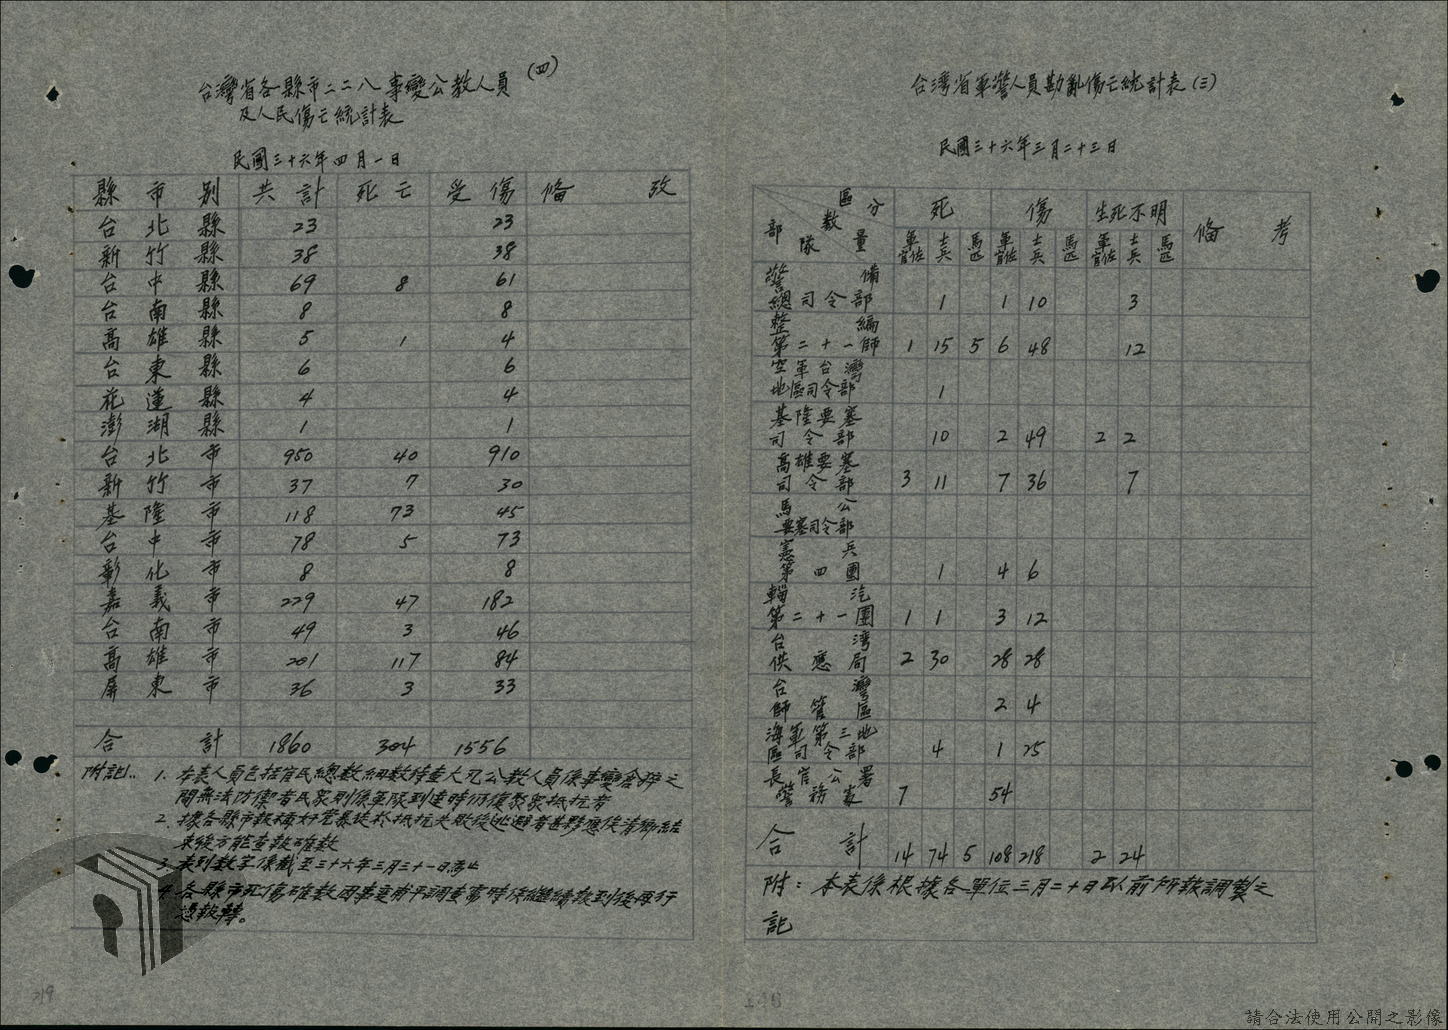 台灣省各縣市二二八事變公教人員 (四)
及人民傷亡統計表
民國三十六年四月一日
縣市別 共計 死亡 受傷 備攷
台北縣 23 23
新竹縣 38 38
台中縣 69 8 61
台南縣 8 8
高雄縣 5 1 4
台東縣 6 6
花蓮縣 4 4
澎湖縣 1 1
台北市 950 40 910
新竹市 37 7 30
基隆市 118 73 45
台中市 78 5 73
彰化市 8 8
嘉義市 229 47 182
台南市 49 3 46
高雄市 201 117 84
屏東市 36 3 33
合計 1860 304 1556
附記：1. 本表人員包括官民總數細數待查大凡公教人員係事變倉猝之
間無法防禦者民衆則係軍隊到達時仍復聚衆抵抗者
2. 據各縣市報稱奸黨暴徒於抵抗失敗後逃避者甚夥應俟清鄉結
束後方能查報確數
3. 表列數字係截至三十六年三月三十一日為止
4. 各縣市死傷確數因事變甫平調查需時俟繼續報到後再行
報轉。
219
台灣省軍警人員勘亂傷亡統計表(三)
民國三十六年三月二十三日
區分 數量 部隊 死 傷 生死不明 備考
軍官佐 士兵 馬匹 軍官佐 士兵 馬匹 軍官佐 士兵 馬匹
警備
總司令部 1 1 10 3
整編
第二十一師 1 15 5 6 48 12
空軍台灣
地區司令部 1
基隆要塞
司令部 10 2 49 2 2
高雄要塞
司令部 3 11 7 36 7
馬公
要塞司令部
憲兵
第四團 1 4 6
輜汽
第二十一團 1 1 3 12
台湾
供應局 2 30 28 28
台灣
師管區 2 4
海軍第三地
區司令部 4 1 25
長官公署
警務處 7 54
合計 14 74 5 108 218 2 24
附記：本表係根據各單位三月二十日以前所報調製之
請合法使用公開之影像